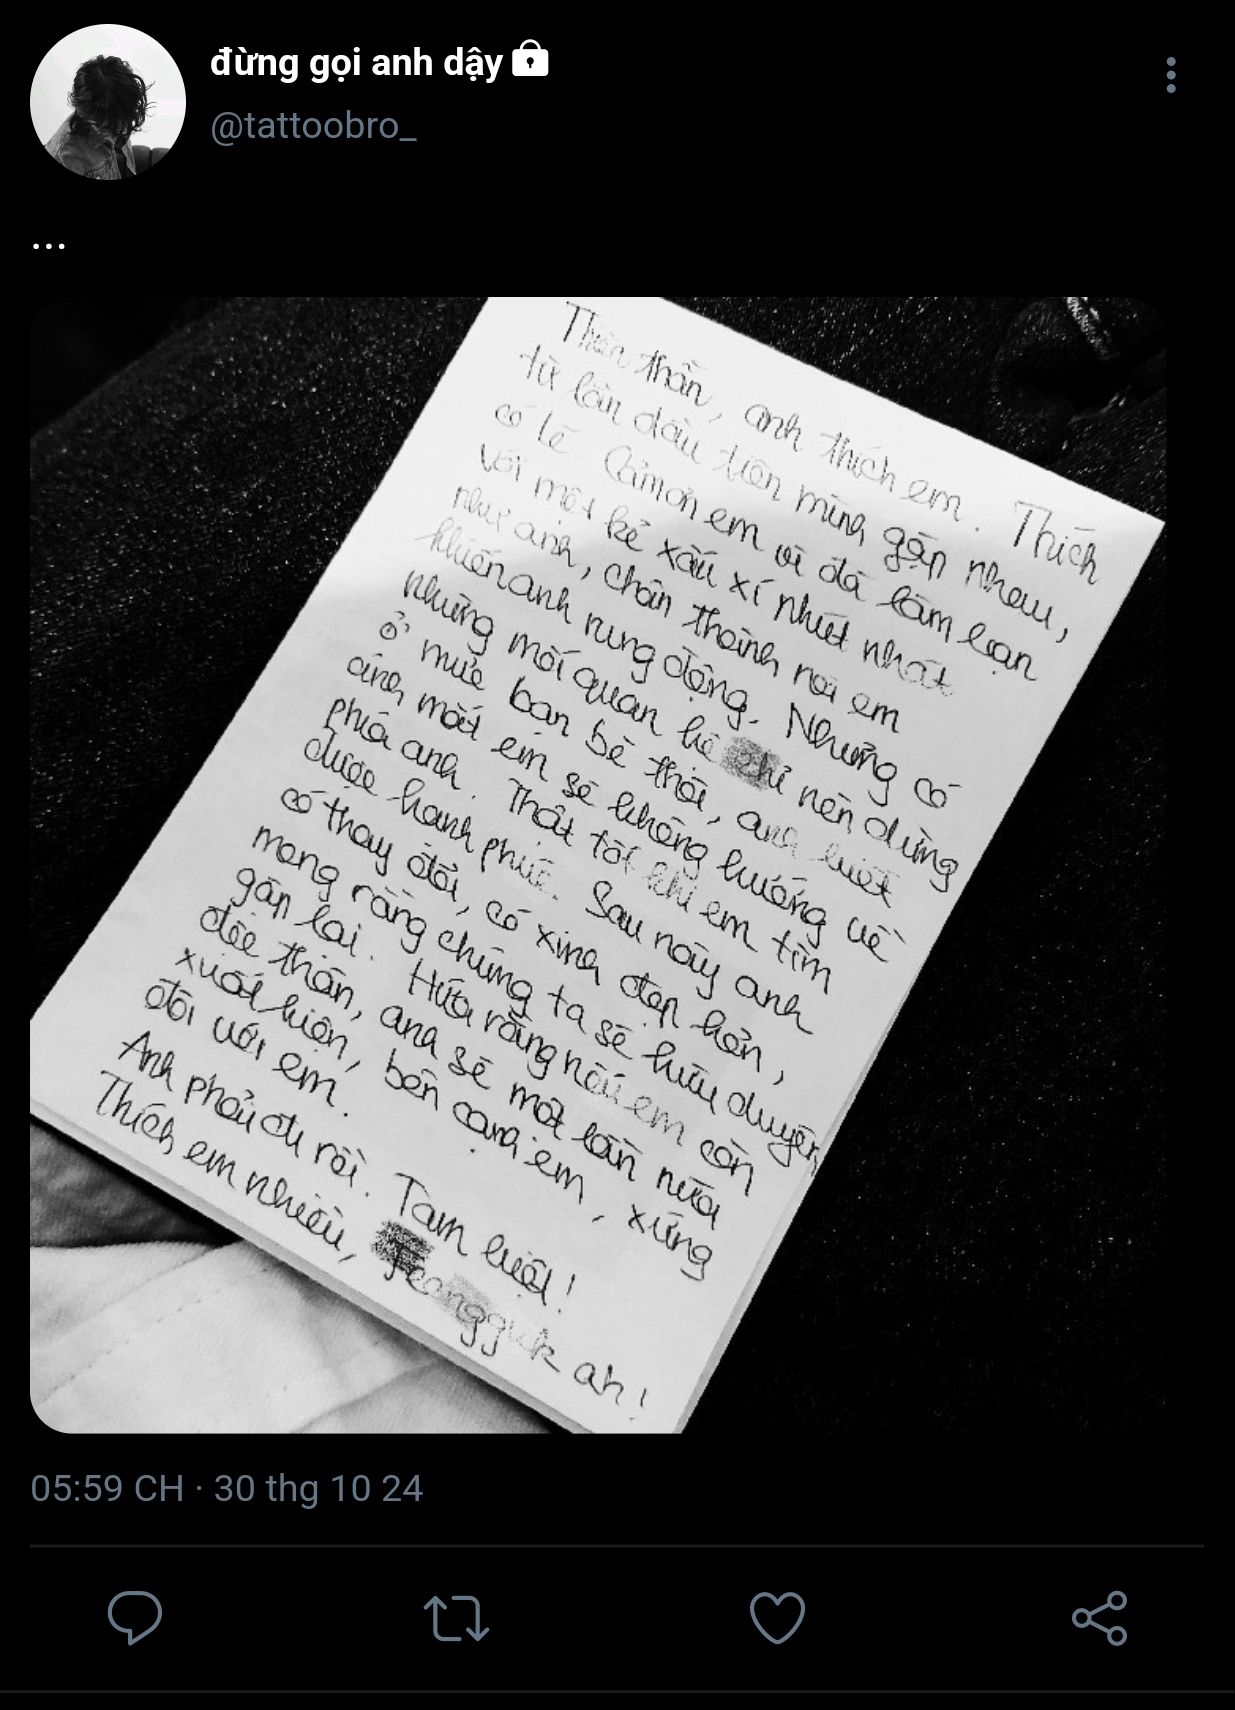 đừng gọi anh dậy
@tattoobro_
...
Thiên thần, anh thích em. Thích
từ lần đầu tiên mình gặp nhau,
có lẽ. Cảm ơn em vì đã làm bạn
với một kẻ xấu xí nhút nhát
như anh, chân thành nơi em
khiến anh rung động. Nhưng có
những mối quan hệ chỉ nên dừng
ở mức bạn bè thôi, anh biết
ánh mắt em sẽ không hướng về
phía anh. Thật tốt khi em tìm
được hạnh phúc. Sau này anh
có thay đổi, có xinh đẹp hơn,
mong rằng chúng ta sẽ hữu duyên
gặp lại. Hứa rằng nếu em còn
độc thân, anh sẽ một lần nữa
xuất hiện, bên cạnh em, xứng
đôi với em.
Anh phải đi rồi. Tạm biệt!
Thích em nhiều, Jeongguk ah!
05:59 CH · 30 thg 10 24